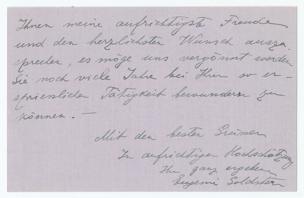 Ihnen meine aufrichtigste Freude
und den herzlichsten Wunsch auszu-
sprechen, es möge uns vergönnt werden
Sie noch viele Jahre bei Ihrer so er-
spriesslichen Tätigkeit bewundern zu
können. —
Mit den besten Grüssen
In aufrichtiger Hochschätzung
Ihr ganz ergebener